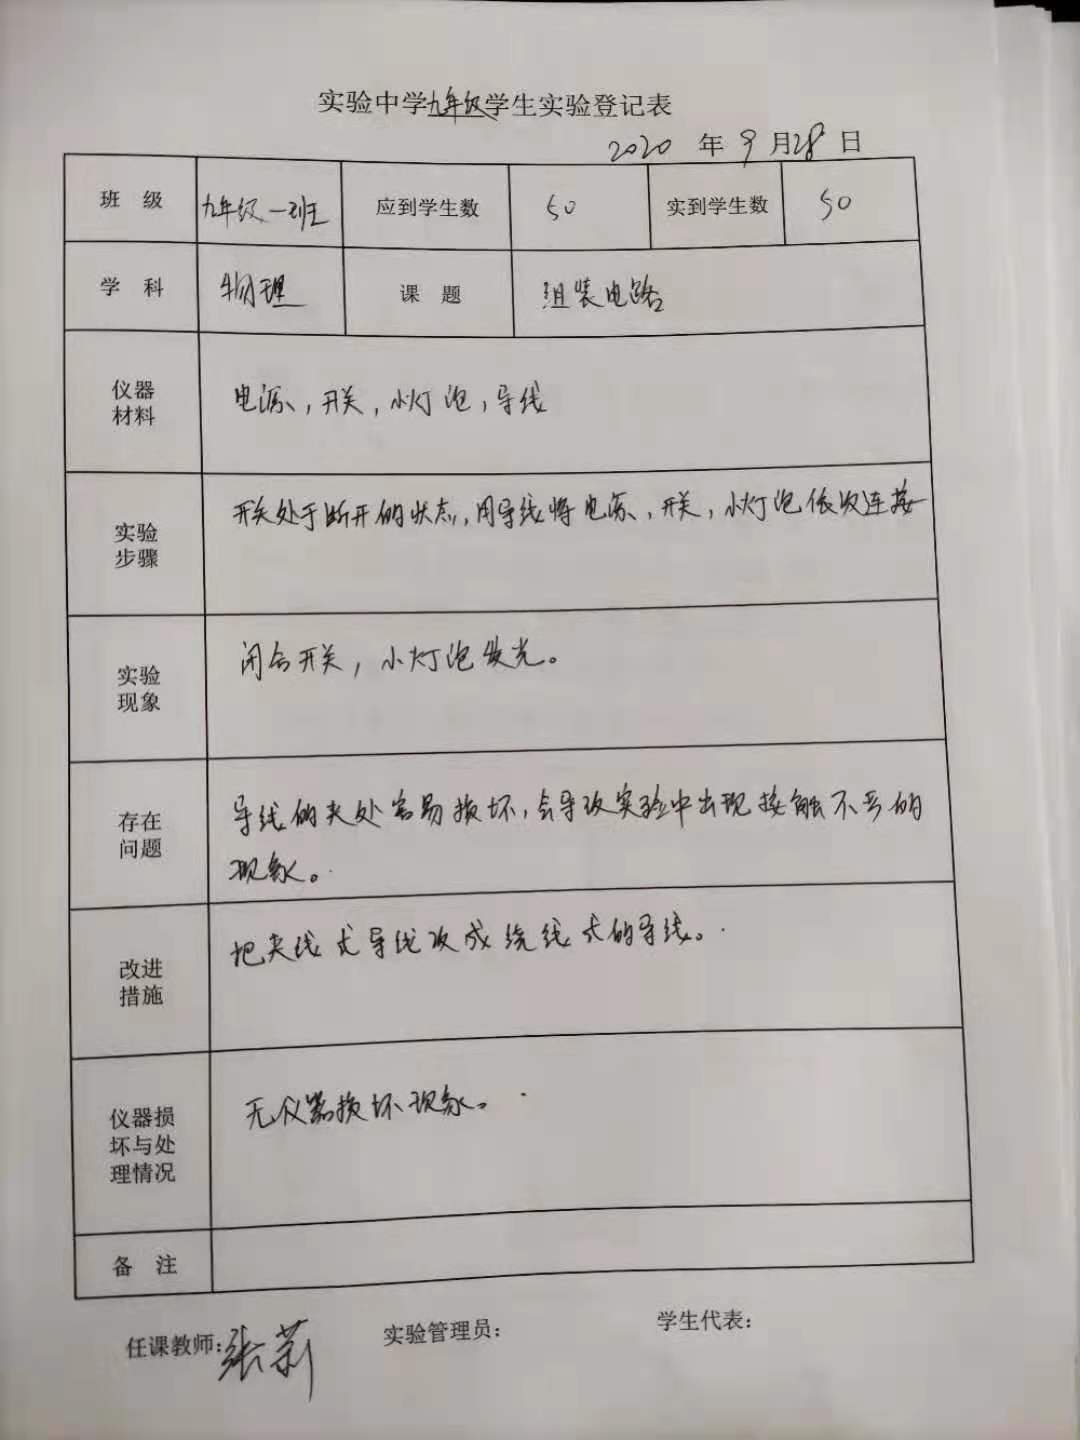 实验中学九年级学生实验登记表
2020 年 9 月 28 日
班 级 九年级一班 应到学生数 50 实到学生数 50
学 科 物理 课 题 组装电路
仪器
材料
电源，开关，小灯泡，导线
实验
步骤
开关处于断开的状态，用导线将电源，开关，小灯泡依次连接
实验
现象
闭合开关，小灯泡发光。
存在
问题
导线的夹处容易损坏，会导致实验中出现接触不良的
现象。
改进
措施
把夹线式导线改成绕线式的导线。
仪器损
坏与处
理情况
无仪器损坏现象。
备 注
任课教师：张莉 实验管理员： 学生代表：